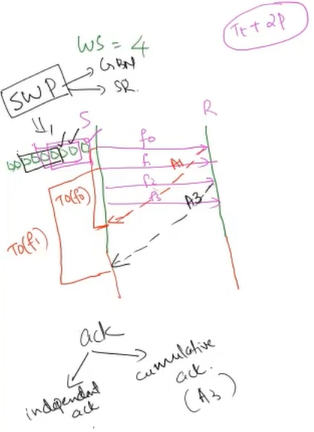 WS = 4
Tt + 2P
SWP
GBN
SR.
S
R
f0
f1
A1
f2
f3
A3
TO(f0)
TO(f1)
ack
independent
ack
cumulative
ack.
(A3)